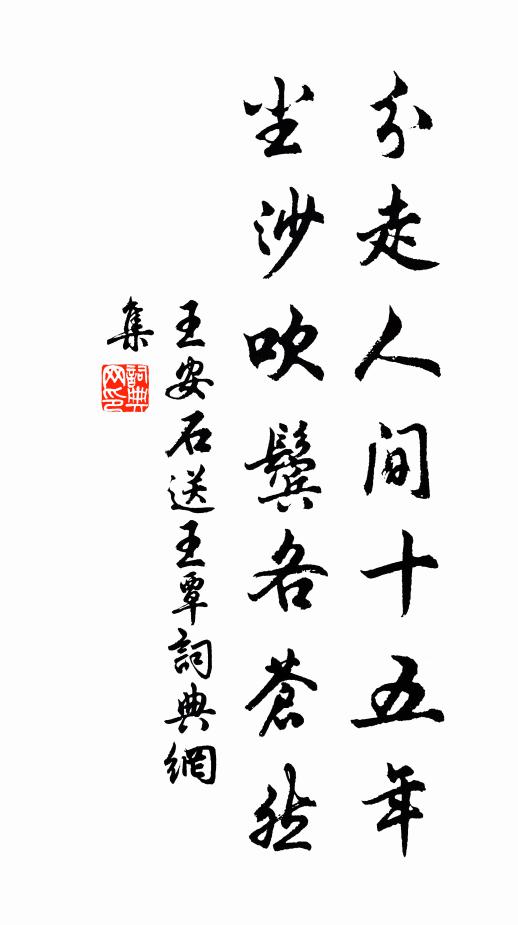 分走人间十五年
尘沙吹鬓各苍然
王安石送王覃詞典網
集
詞典網印